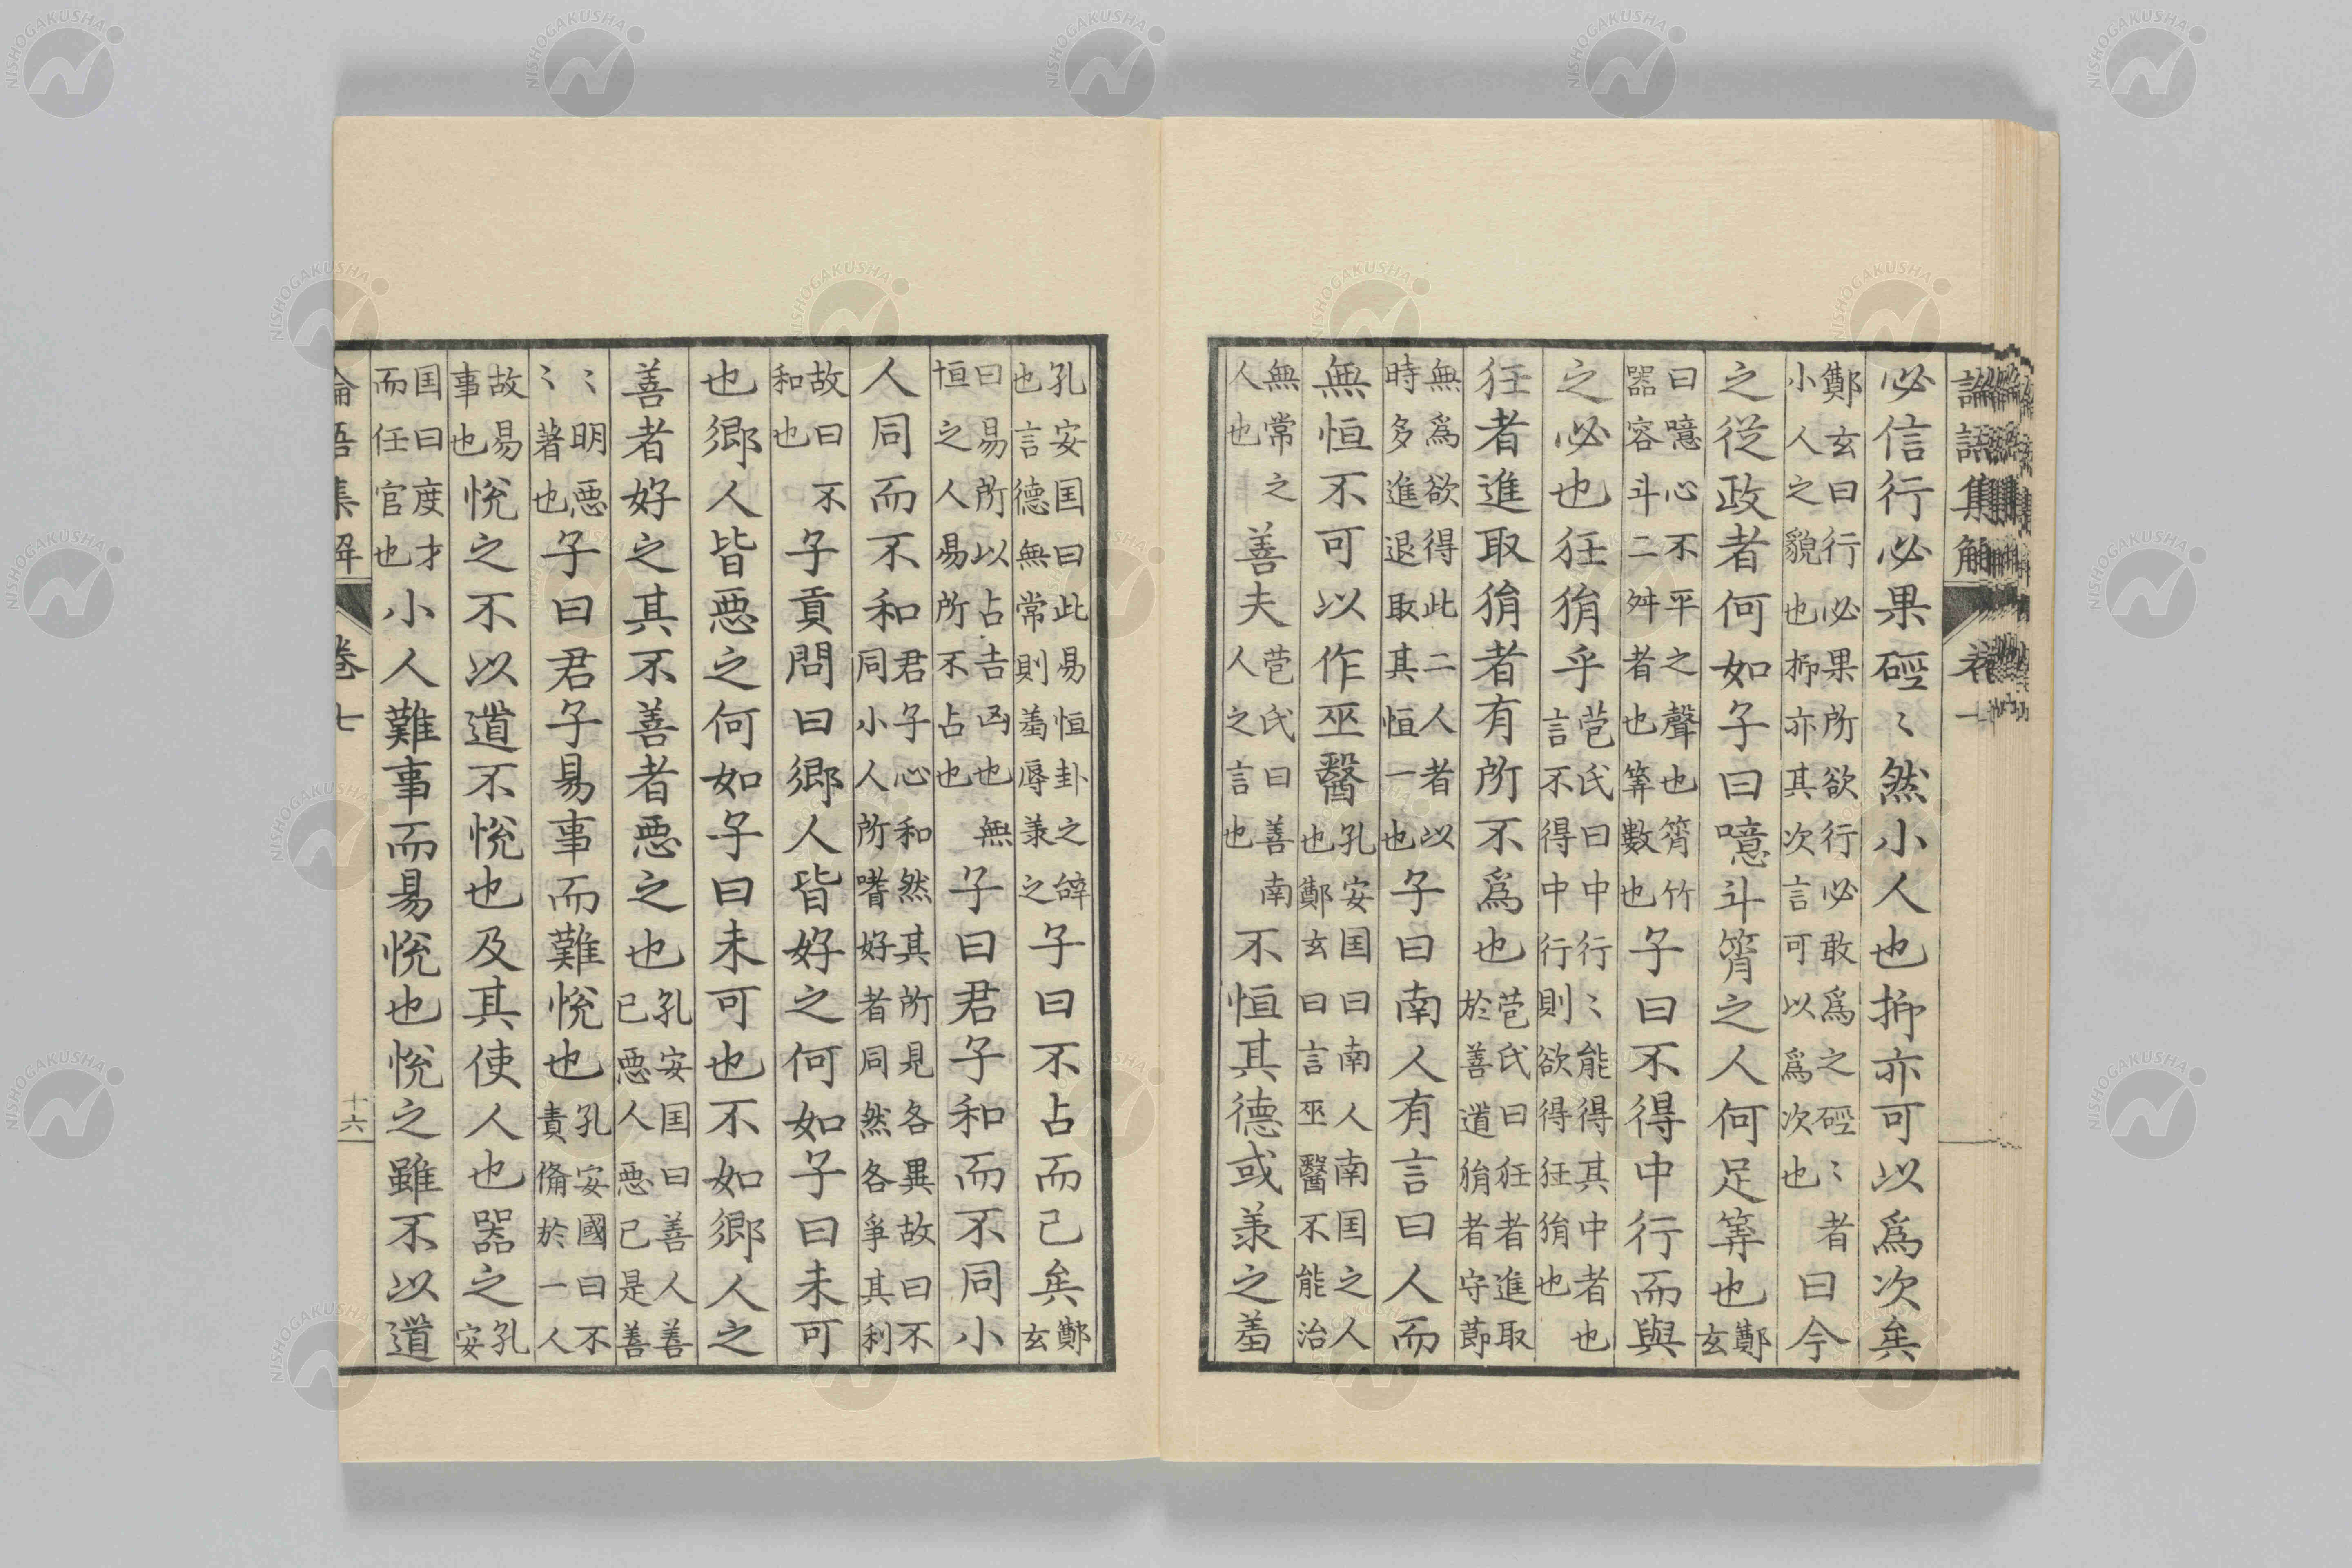 論語集解
必信行必果硜〻然小人也抑亦可以爲次矣
鄭玄曰行必果所欲行必敢爲之硜〻者
小人之貌也抑亦其次言可以爲次也
曰今
之從政者何如子曰噫斗筲之人何足筭也鄭玄
曰噫心不平之聲也筲竹
噐容斗二舛者也筭數也
子曰不得中行而與
之必也狂狷乎
苞氏曰中行〻能得其中者也
言不得中行則欲得狂狷也
狂者進取狷者有所不爲也
苞氏曰狂者進取
於善道狷者守莭
無爲欲得此二人者以
時多進退取其恒一也
子曰南人有言曰人而
無恒不可以作巫醫
孔安国曰南人南国之人
也鄭玄曰言巫醫不能治
無常之
人也
善夫
苞氏曰善南
人之言也
不恒其德或羕之羞
孔安国曰此易恒卦之辝
也言德無常則羞辱羕之
子曰不占而已矣鄭玄
曰易所以占吉凶也無
恒之人易所不占也
子曰君子和而不同小
人同而不和
君子心和然其所見各異故曰不
同小人所嗜好者同然各爭其利
故曰不
和也
子貢問曰鄉人皆好之何如子曰未可
也鄉人皆惡之何如子曰未可也不如鄉人之
善者好之其不善者惡之也
孔安国曰善人善
己惡人惡己是善
〻明惡
〻著也
子曰君子易事而難悅也
孔安國曰不
責俻於一人
故易
事也
悅之不以道不悅也及其使人也噐之
孔
安
国曰度才
而任官也
小人難事而易悅也悅之雖不以道
論語集解 卷七 十六
NISHOGAKUSHA